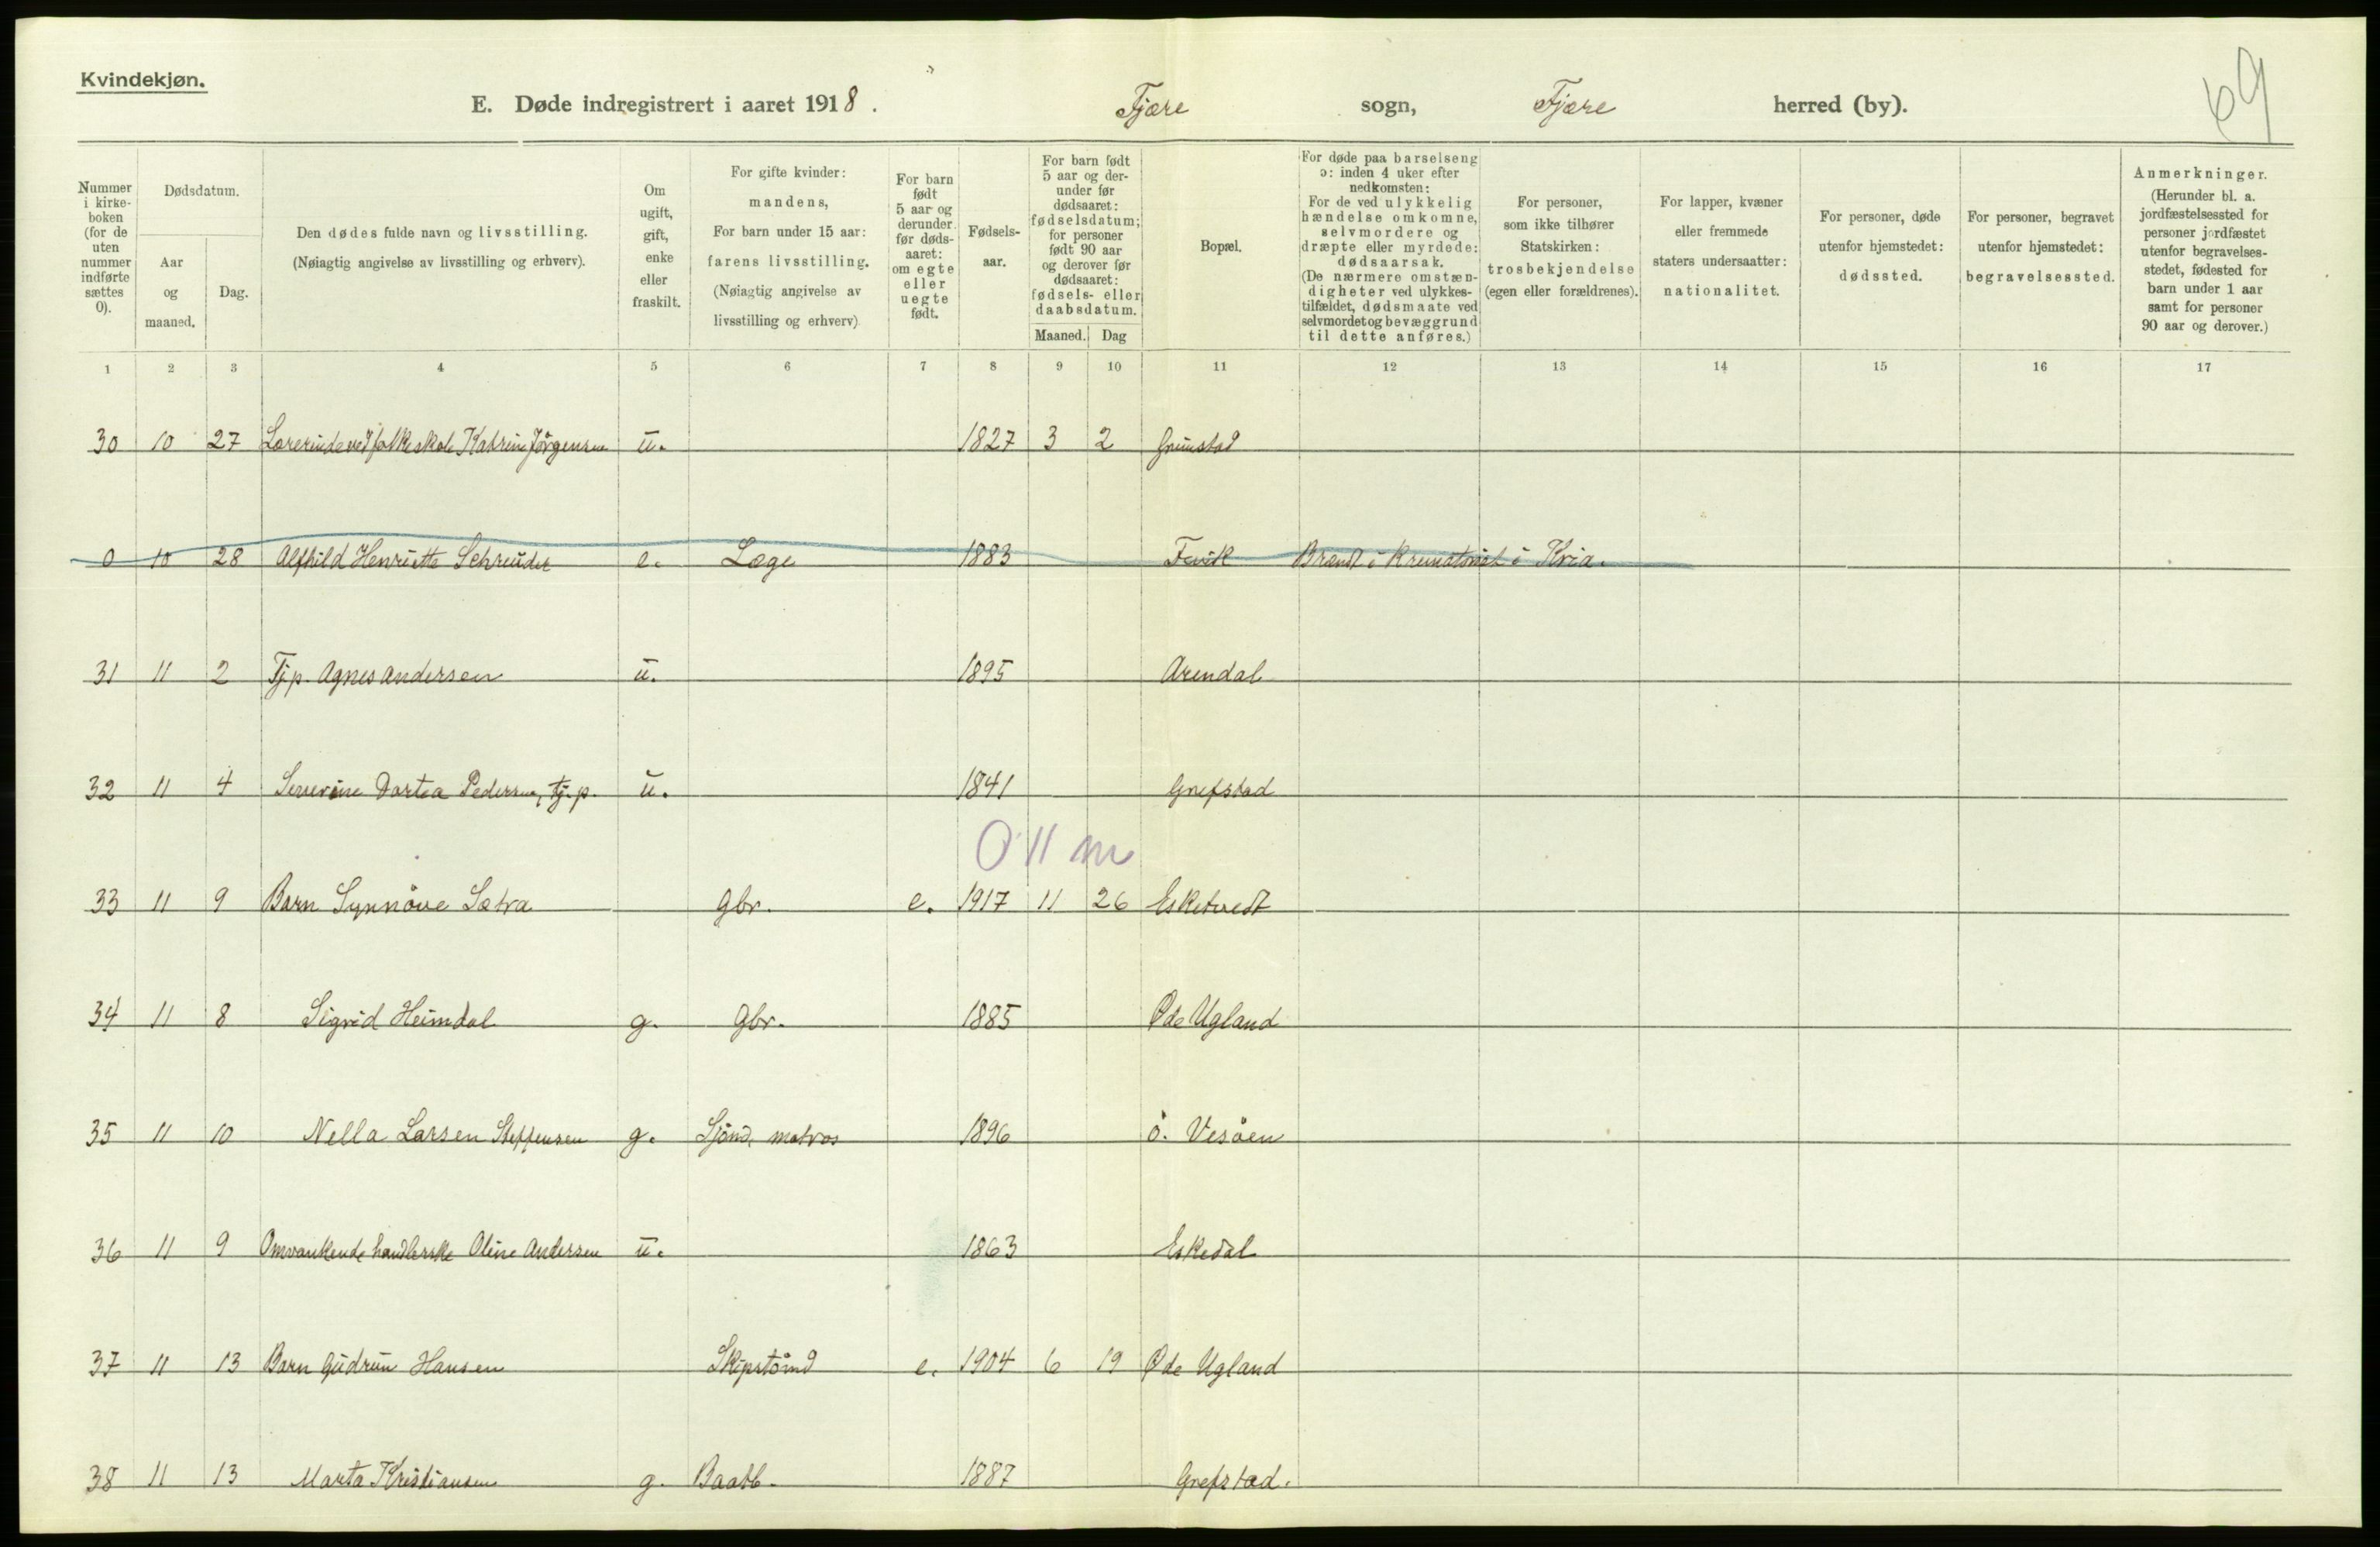 Kvindekjøn.
E. Døde indregistrert i aaret 1918. Fjære sogn, Fjære herred (by).
69
Nummer i kirke-boken (for de uten nummer indførte sættes 0).
Dødsdatum.
Aar og maaned.
Dag.
Den dødes fulde navn og livsstilling.
(Nøiagtig angivelse av livsstilling og erhverv).
Om ugift, gift, enke eller fraskilt.
For gifte kvinder: mandens,
For barn under 15 aar: farens livsstilling.
(Nøiagtig angivelse av livsstilling og erhverv)
For barn født 5 aar og derunder før døds-aaret: om egte eller uegte født.
Fødsels-aar.
For barn født 5 aar og der-under før dødsaaret: fødselsdatum; for personer født 90 aar og derover før dødsaaret: fødsels- eller daabsdatum.
Maaned. Dag
Bopæl.
For døde paa barselseng ɔ: inden 4 uker efter nedkomsten:
For de ved ulykkelig hændelse omkomne, selvmordere og dræpte eller myrdede: dødsaarsak.
(De nærmere omstæn-digheter ved ulykkes-tilfældet, dødsmaate ved selvmordet og bevæggrund til dette anføres.)
For personer, som ikke tilhører Statskirken: trosbekjendelse (egen eller forældrenes).
For lapper, kvæner eller fremmede staters undersaatter: nationalitet.
For personer, døde utenfor hjemstedet: dødssted.
For personer, begravet utenfor hjemstedet: begravelsessted.
Anmerkninger.
(Herunder bl. a. jordfæstelsessted for personer jordfæstet utenfor begravelses-stedet, fødested for barn under 1 aar samt for personer 90 aar og derover.)
1 2 3 4 5 6 7 8 9 10 11 12 13 14 15 16 17
30 10 27 Lærerinde ved folkeskole Katrine Jörgensen u. 1827 3 2 Grimstad
0 10 28 Alfhild Henriette Schreuder e. Læge 1883 Fevik Brændt i Krematoriet i Kria.
31 11 2 Tjp. Agnes Andersen u. 1895 Arendal
32 11 4 Severine Dortea Pedersen, tj. p. u. 1841 Grefstad
0 11 m
33 11 9 Barn Synnöve Sætra Gbr. e. 1917 11 26 Esketvedt
34 11 8 Sigrid Heimdal g. Gbr. 1885 Øde Ugland
35 11 10 Nella Larsen Steffensen g. Sjömd. matros 1896 ö. Vesöen
36 11 9 Omvankende handlerske Oline Andersen u. 1863 Eskedal
37 11 13 Barn Gudrun Hansen Skipstömd e. 1904 6 19 Øde Ugland
38 11 13 Marta Kristiansen g. Baatb. 1887 Grefstad.